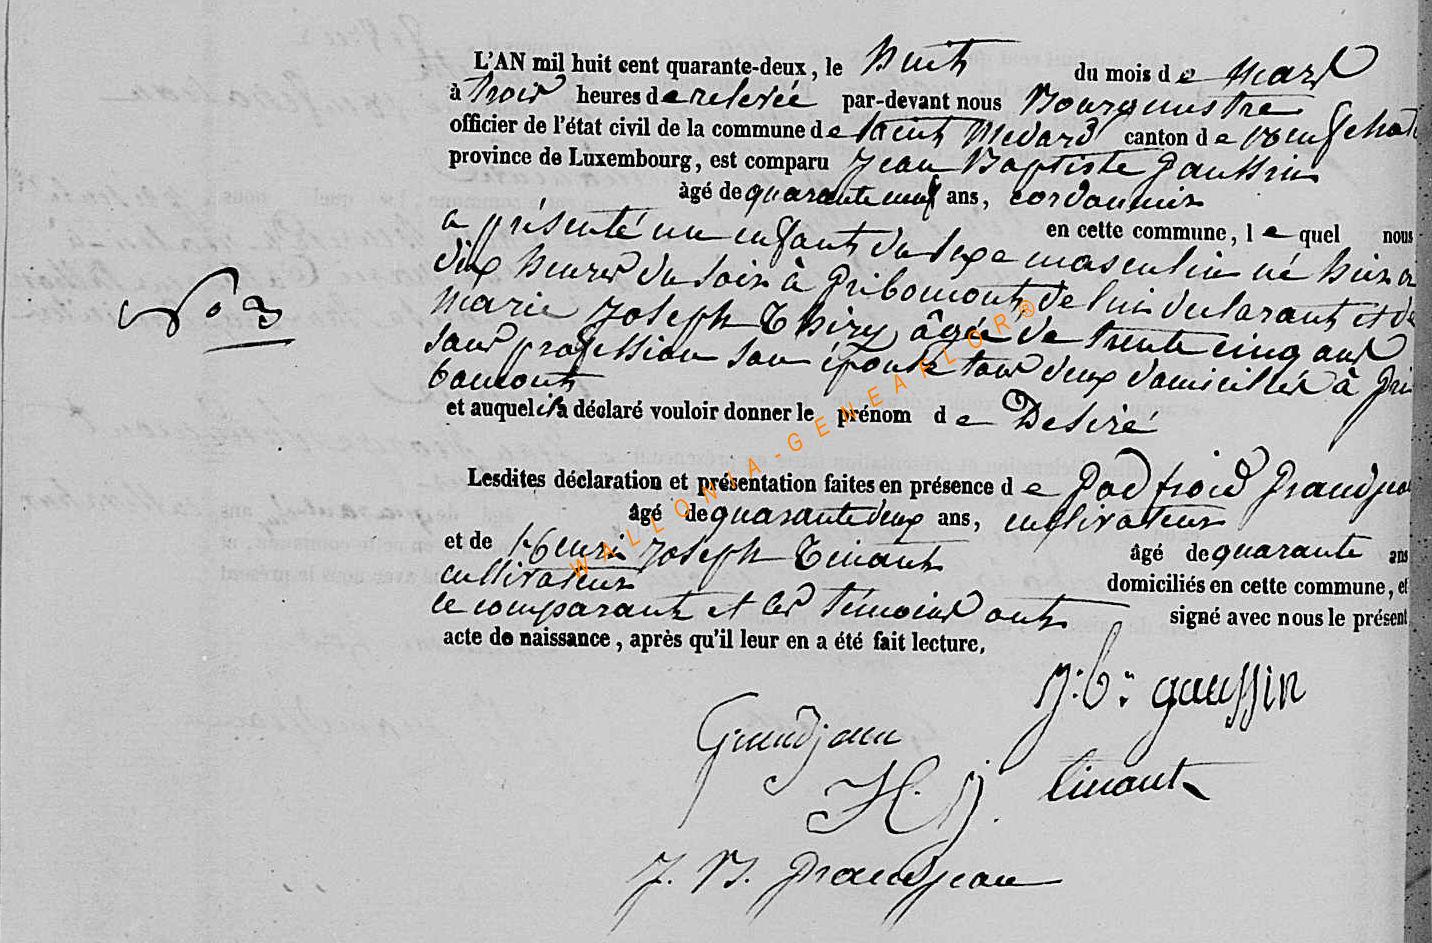 L'AN mil huit cent quarante-deux, le huit du mois de mars
à trois heures de relevée par-devant nous Bourgmestre
officier de l'état civil de la commune de Saint Medard canton de Neufchat
province de Luxembourg, est comparu Jean Baptiste Gaussin
âgé de quarante neuf ans, cordonnier
en cette commune, lequel nous
a présenté un enfant du sexe masculin né hier a
dix heures du soir à Gribomont, de lui declarant et de
Marie Joseph Thiry âgée de trente cinq ans
sans profession son épouse tous deux domiciliés à Gri
bomont
et auquel il a déclaré vouloir donner le prénom de Desiré
No 3
Lesdites déclaration et présentation faites en présence de Godfroid Grandjea
âgé de quarante deux ans, cultivateur
et de Henri Joseph Tinant âgé de quarante ans
cultivateur domiciliés en cette commune, et
le comparant et les témoins ont signé avec nous le présent
acte de naissance, après qu'il leur en a été fait lecture.
j. b. gaussin
Grandjean
H. J. Tinant
J. B. Grandjean
WALLONIA-GENEAFLOR®